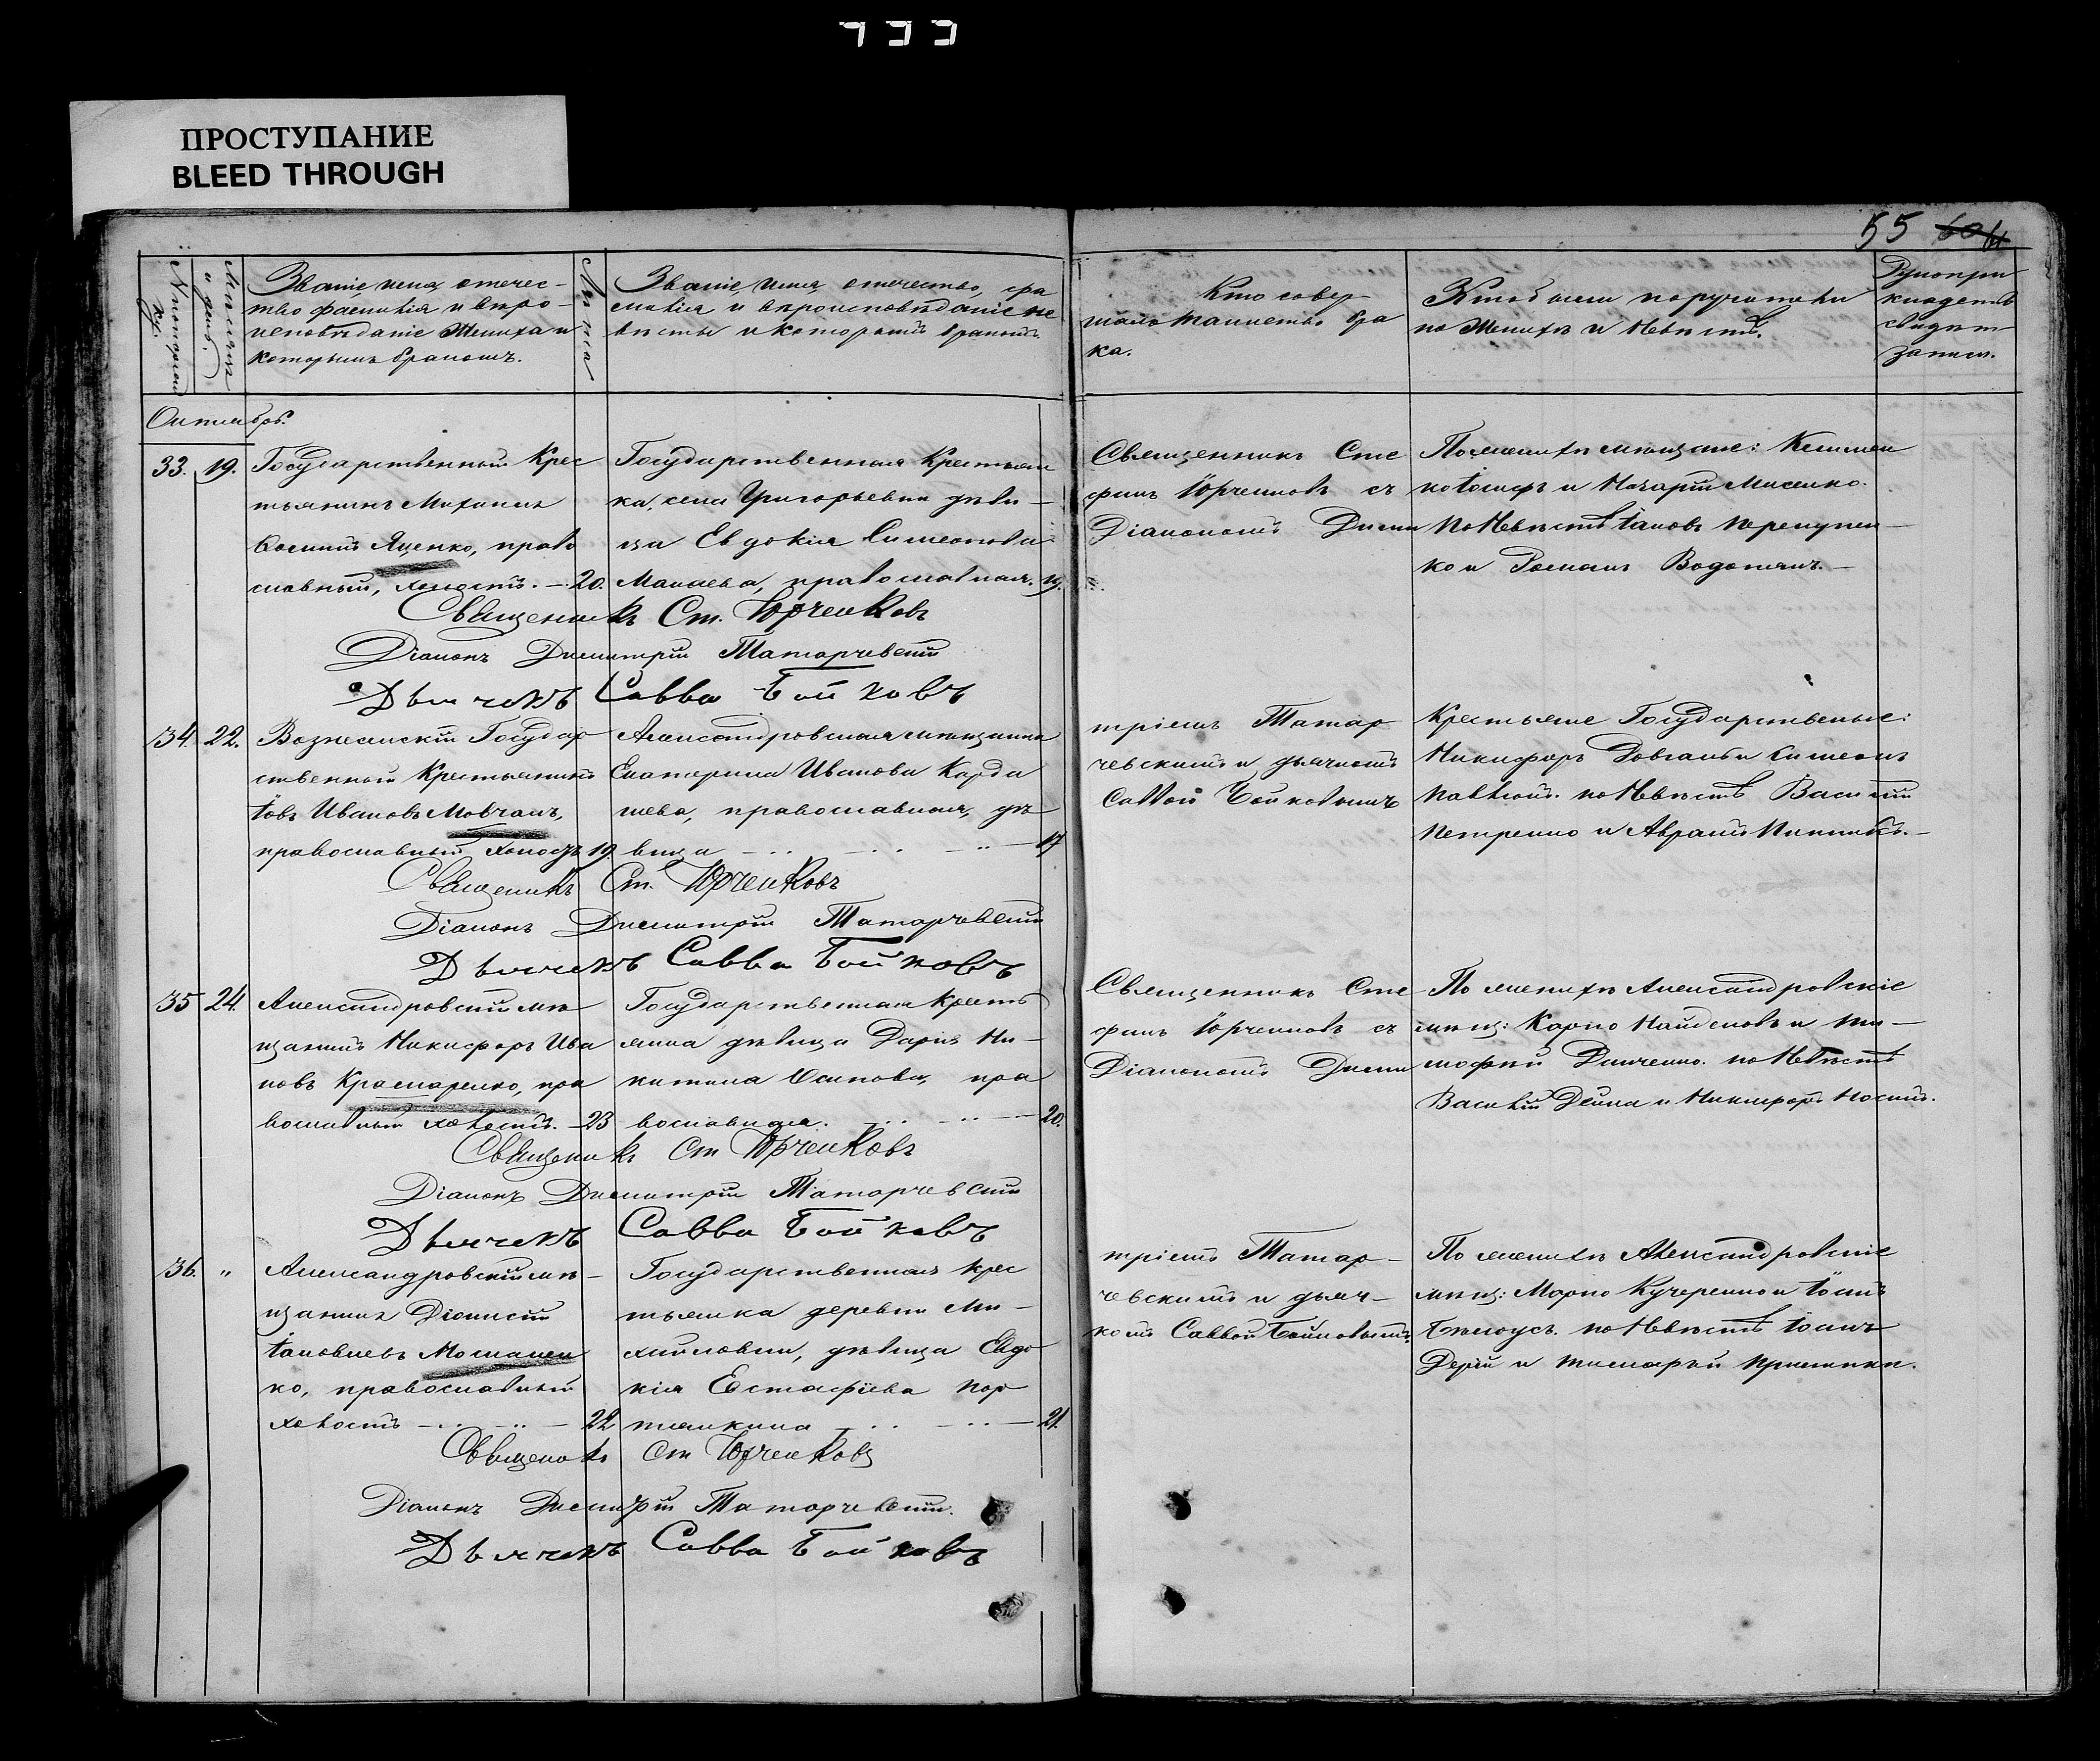 ПРОСТУПАНИЕ
BLEED THROUGH
55
Званіе, имя, отечес-
тво фамилія и веро-
исповѣданіе Жениха и
которымъ бракомъ.
Лѣта
Званіе, имя, отечество, фа
милія и вѣроисповѣданіе не
вѣсты и которымъ бракомъ.
Кто совер
шалъ таинство бра
ка.
Кто были поручители
по Женихѣ и Невѣстѣ.
записи.
Октябрь.
33. 19. Государственный Крес
тьянинъ Михаилъ
Яценко, право
славный, холостъ. — 20.
Государственная Крестьян
ка, села Григорьевки дѣви-
ца Евдокія Симеонова
православная. 19.
Священникъ Сте
фанъ Юрченковъ съ
Діакономъ Дими
По женихѣ мѣщане:
По Невѣстѣ Іаковъ Перепупен-
ко и Романъ Водопьянъ. —
Священникъ Ст. Юрченковъ
Діаконъ Димитрій Татарчевскій
Дьячекъ Савва Бойковъ
34. 22. Вознесенскій Государ
ственный Крестьянинъ
Іовъ Ивановъ Мовчанъ,
православный холостъ 19.
Александровская мѣщанка
Екатерина Иванова Карда
шева, православная, дѣ
вица 17
тріемъ Татар
чевскимъ и дьячкомъ
Саввой Бойковымъ
Крестьяне Государственные:
Никифоръ Довгань и Симеонъ
по Невѣстѣ Василій
Петренко и Аврамъ
Священникъ Ст. Юрченковъ
Діаконъ Димитрій Татарчевскій
Дьячекъ Савва Бойковъ
35 24. Александровскій мѣ
щанинъ Никифоръ Ива
новъ Крамаренко, пра
вославный холостъ. — 23
Государственная Кресть
янка дѣвица Дарія Ни-
китина Осипова, пра
вославная. 20.
Священникъ Сте
фанъ Юрченковъ съ
Діакономъ Дими
По женихѣ Александровскіе
мѣщ: Карпо Найденовъ и Ти-
мофей Динченко. по Невѣстѣ
Василій Дейна и Никифоръ Носикъ.
Священникъ Ст Юрченковъ
Діаконъ Димитрій Татарчевскій
Дьячекъ Савва Бойковъ
36. " Александровскій мѣ-
щанинъ Діонисій
ко, православный
холостъ 22
Государственная Крес
тьянка деревни Ми-
хайловки, дѣвица Евдо
кія Естафіева Пор
тянкина 21.
тріемъ Татар-
чевскимъ и дьяч-
комъ Саввой Бойковымъ.
По женихѣ Александровскіе
мѣщ: Марко Кучеренко и Іоанъ
Бѣлоусъ. по Невѣстѣ Іоанъ
Священникъ Ст Юрченковъ
Діаконъ Димитрій Татарчевскій.
Дьячекъ Савва Бойковъ